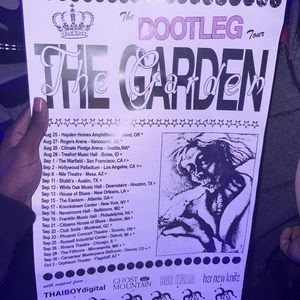 The
BOOTLEG
Tour
THE GARDEN
The Garden
Aug 25 - Hayden Homes Amphitheater, Bend, OR *
Aug 27 - Rogers Arena - Vancouver, BC *
Aug 28 - Climate Pledge Arena - Seattle, WA *
Aug 29 - Treefort Music Hall - Boise, ID +
Sep 1 - The Warfield - San Francisco, CA + ×
Sep 2 - Hollywood Palladium - Los Angeles, CA + ×
Sep 9 - Nile Theater - Mesa, AZ +
Sep 11 - Stubb's - Austin, TX +
Sep 12 - White Oak Music Hall - Downstairs - Houston, TX +
Sep 13 - House of Blues - New Orleans, LA +
Sep 15 - The Eastern - Atlanta, GA +
Sep 17 - Knockdown Center - New York, NY +
Sep 18 - Nevermore Hall - Baltimore, MD +
Sep 19 - Franklin Music Hall - Philadelphia, PA +
Sep 21 - Citizens House of Blues - Boston, MA +
Sep 22 - Club Soda - Montreal, QC +
Sep 23 - Phoenix Concert Theatre - Toronto, ON +
Sep 25 - Russell Industrial Center - Detroit, MI +
Sep 26 - Riviera Theatre - Chicago, IL +
Sep 28 - The Fillmore - Minneapolis, MN +
Sep 30 - Cervantes' Masterpiece Ballroom - Denver, CO +
Oct 2 - Orpheum Theater - Flagstaff, AZ +
with support from
THAIBOYdigital
GHOST
MOUNTAIN
her new knife